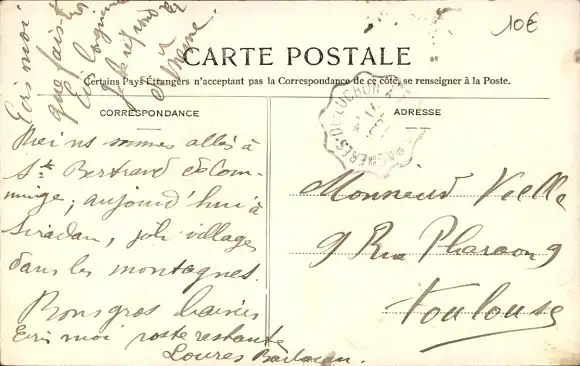 Ecris moi
que fais tu
10€
CARTE POSTALE
Certains Pays Étrangers n'acceptant pas la Correspondance de ce côté, se renseigner à la Poste.
CORRESPONDANCE
ns sommes allés à
St Bertrand de Com-
minge; aujourd'hui à
Siradan, joli village
dans les montagnes.
Bons gros baisers
Ecris moi poste restante
Loures Barbazan.
ADRESSE
LUCHON À
Monsieur Vielle
9 Rue Pharaon 9
Toulouse